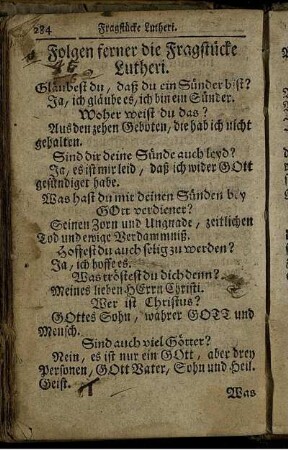 284 Fragstücke Lutheri.
Folgen ferner die Fragstücke
Lutheri.
Gläubest du, daß du ein Sünder bist?
Ja, ich gläube es, ich bin ein Sünder.
Woher weist du das?
Aus den zehen Geboten, die hab ich nicht
gehalten.
Sind dir deine Sünde auch leyd?
Ja, es ist mir leid, daß ich wider GOtt
gesündiget habe.
Was hast du mit deinen Sünden bey
GOtt verdienet?
Seinen Zorn und Ungnade, zeitlichen
Tod und ewige Verdammniß.
Hoffest du auch selig zu werden?
Ja, ich hoffe es.
Was tröstest du dich denn?
Meines lieben HErrn Christi.
Wer ist Christus?
GOttes Sohn, wahrer GOTT und
Mensch.
Sind auch viel Götter?
Nein, es ist nur ein GOtt, aber drey
Personen, GOtt Vater, Sohn und Heil.
Geist.
Was